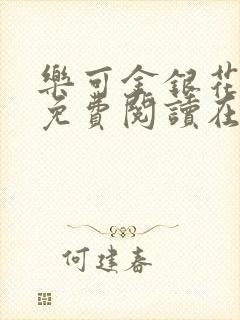 樂可金銀花
免費閱讀在
何建春